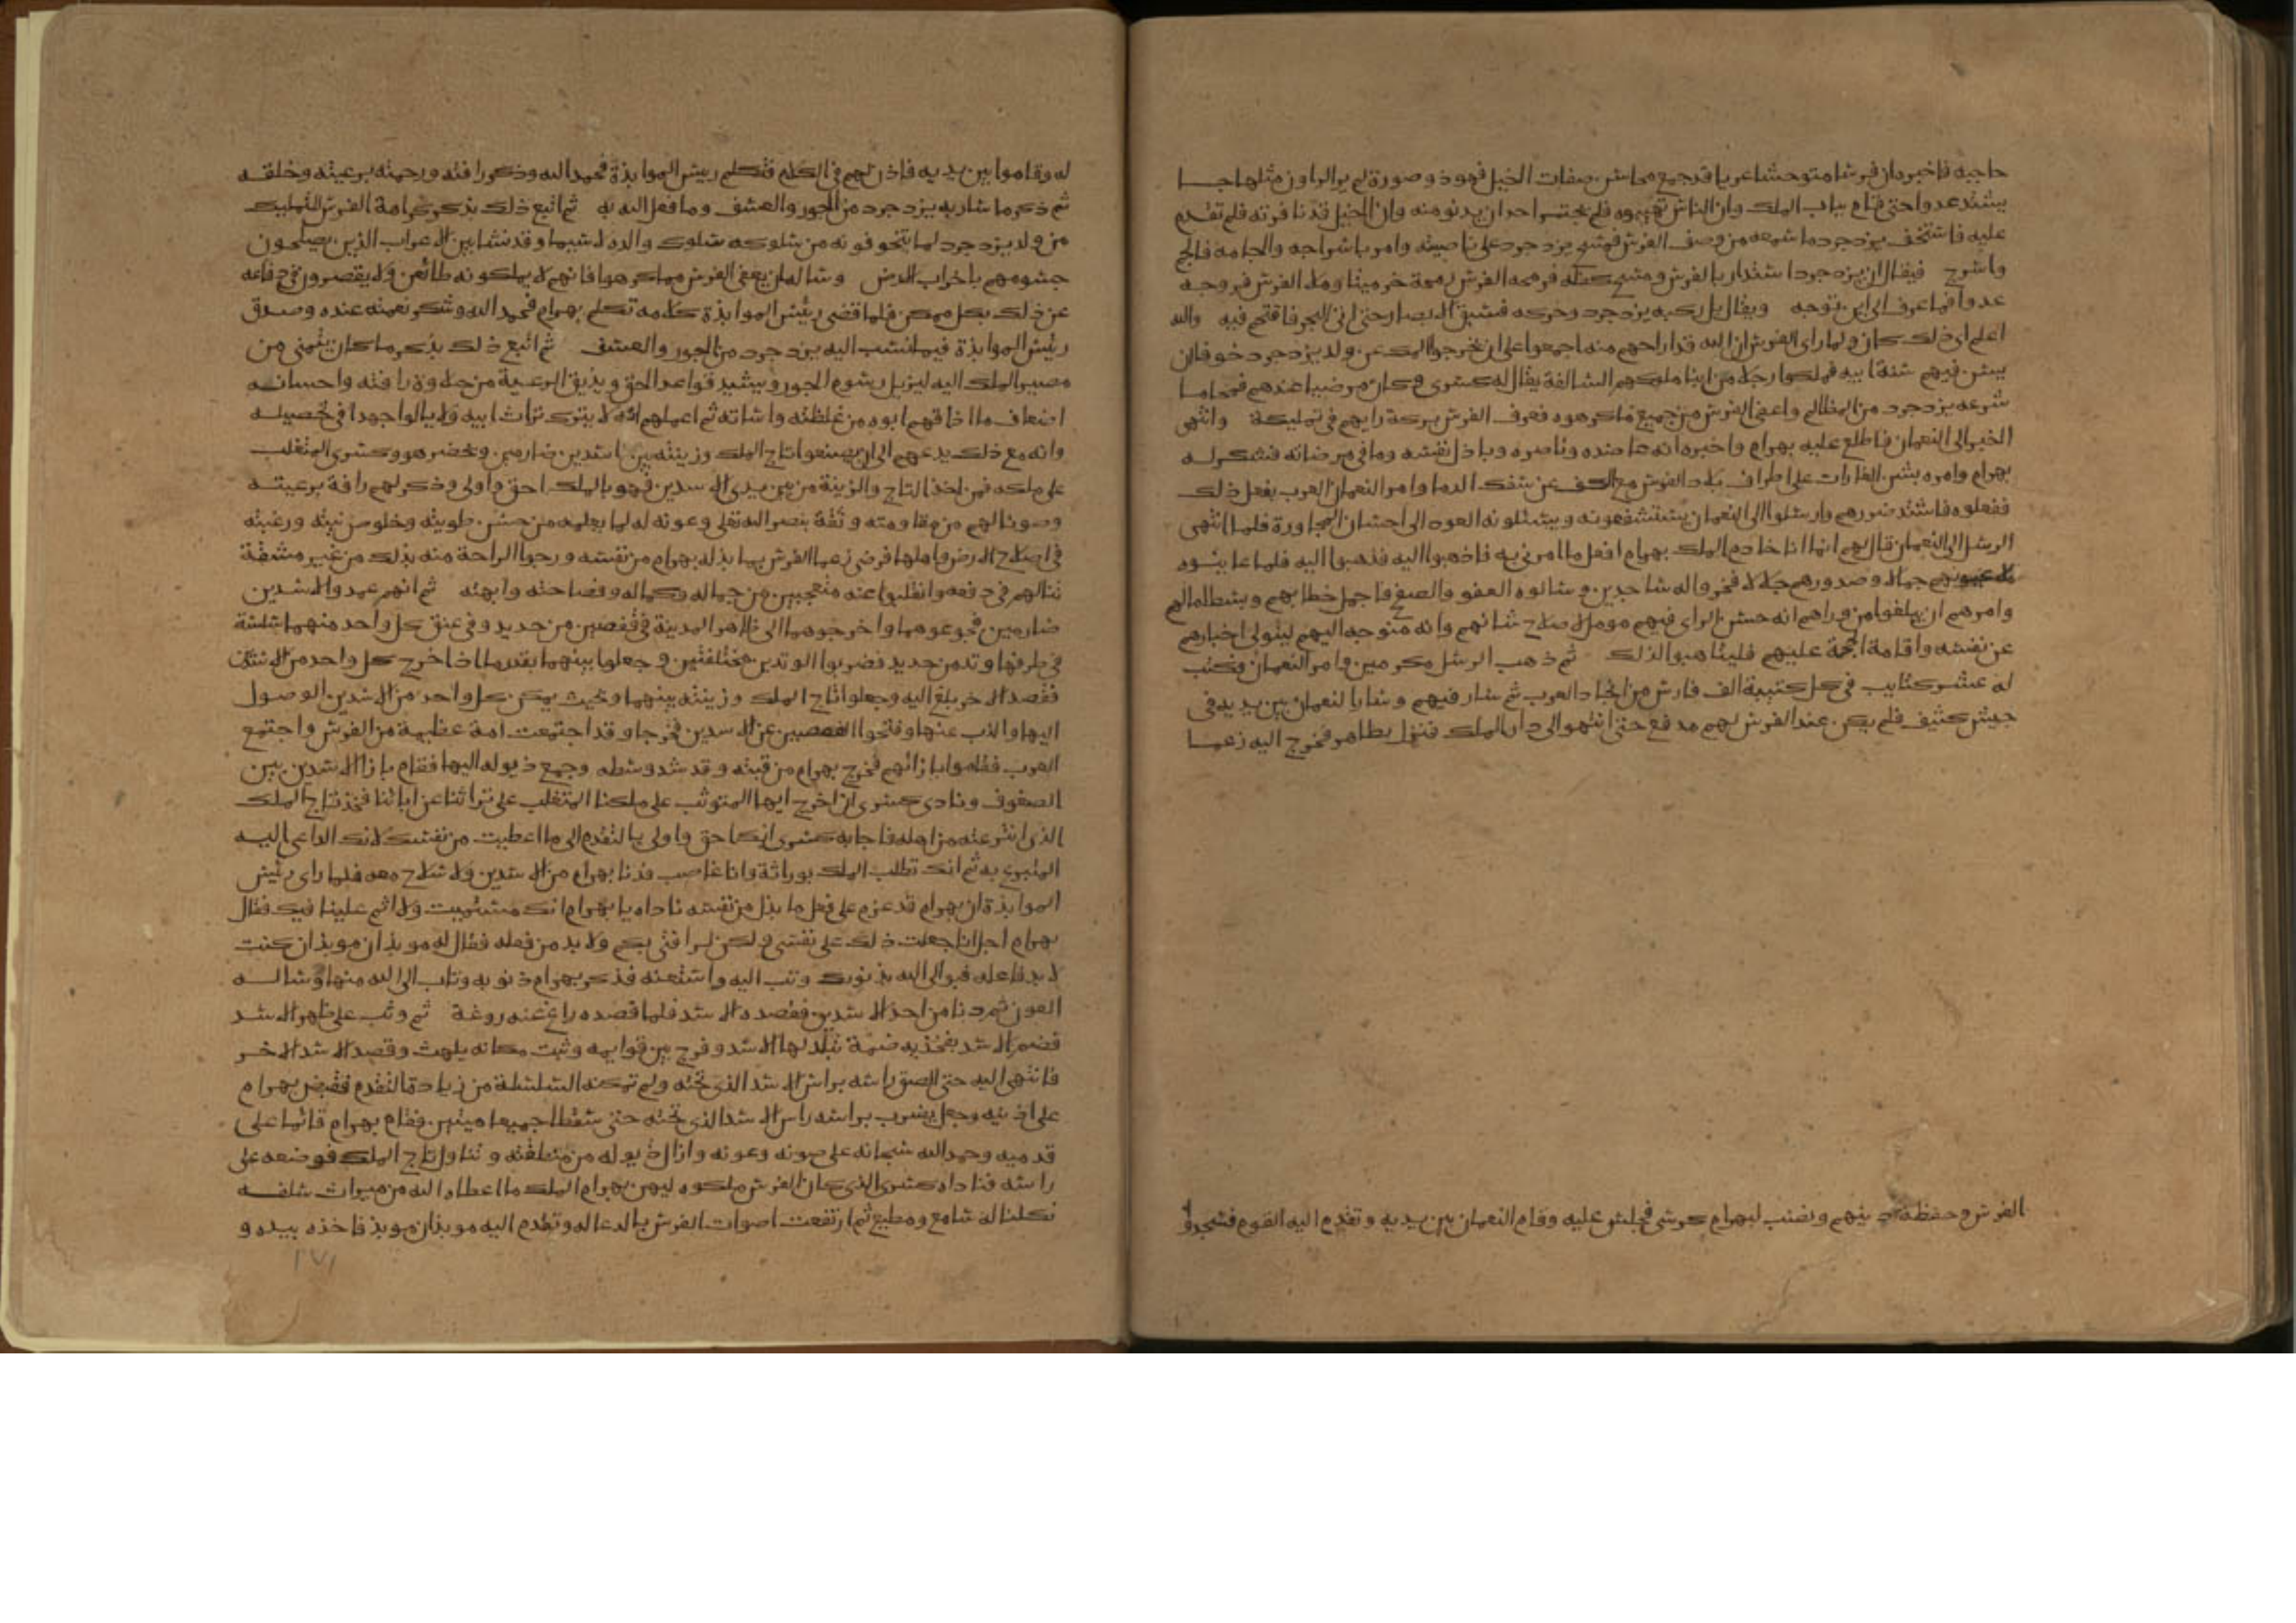 حاجبه فاخبره ان فرسا متوحشا عريا قد جمع محاسن صفات الخيل فهو ذو صورة لم ير الراون مثلها جا
يشتد عدوا حتى قام بباب الملك وان الناس تهيبوه فلم يجتسر احد ان يدنو منه وان الخيل قد نافرته فلم تقدم
عليه فاستخف يزدجرد ما سمعه من وصف الفرس فمشى يزدجرد على ناصيته وامر باسراجه والجامه فالجم
واسرج فيقال ان يزدجرد استدار بالفرس ومسح كفله فرمحه الفرس رمحة خر ميتا وملا الفرس فروجه
عدوا فما عرف الى اين توجه ويقال بل ركبه يزدجرد وحركه فسبق الابصار حتى اتى البحر فاقتحم فيه والله
اعلم اي ذلك كان ولما راى الفرس ان الله قد اراحهم منه اجمعوا على ان يخرجوا الملك عن ولد يزدجرد خوفا ان
يسن فيهم سنة ابيه فملكوا رجلا من ابنا ملوكهم السالفة يقال له كسرى وكان مرضيا عندهم فمحا ما
شرعه يزدجرد من المظالم واعفى الفرس من جميع ما كرهوه فعرف الفرس بركة رايهم في تمليكه وانتهى
الخبر الى النعمان فاطلع عليه بهرام واخبره انه عاضده وناصره وباذل نفسه وما في مرضاته فشكر له
بهرام وامره بشن الغارات على اطراف بلاد الفرس مع الكف عن سفك الدما وامر النعمان العرب بفعل ذلك
ففعلوه فاشتد ضررهم وارسلوا الى النعمان يستشفعونه ويسئلونه العود الى احسان المجاورة فلما انتهى
الرسل الى النعمان قال لهم انما انا خادم الملك بهرام افعل ما امرني به فاذهبوا اليه فذهبوا اليه فلما عاينوه
ملا عيونهم جمالا وصدورهم جلالا فخروا له ساجدين وسالوه العفو والصفح فاجمل خطابهم وبسط امالهم
وامرهم ان يبلغوا من وراهم انه حسن الراى فيهم مومل لاصلاح شانهم وانه متوجه اليهم ليتولى اخبارهم
عن نفسه واقامة الحجة عليهم فليتاهبوا لذلك ثم ذهب الرسل مكرمين وامر النعمان فكتب
له عشر كتايب في كل كتيبة الف فارس من انجاد العرب ثم سار فيهم وسار النعمان بين يديه في
جيش كثيف فلم يكن عند الفرس لهم مدفع حتى انتهوا الى دار الملك فنزل بظاهر فخرج اليه زعما
الفرس وحفظة دينهم ونصب لبهرام كرسي فجلس عليه وقام النعمان بين يديه وتقدم اليه القوم فسجدوا
له وقاموا بين يديه فاذن لهم في الكلام فتكلم رييس الموابذة فحمد الله وذكر رافته ورحمته برعيته وخلقه
ثم ذكر ما سار به يزدجرد من الجور والعسف وما فعل الله به ثم اتبع ذلك بذكر كرامة الفرس لتمليك
من ولد يزدجرد لما يتخوفونه من سلوكه سلوك والده لاسيما وقد نشا بين الاعراب الذين يصلحون
جسومهم باخراب الارض وساله ان يعفي الفرس مما كرهوا فانهم لا يملكونه طائعين ولا يقصرون في دفاعه
عن ذلك بكل ممكن فلما قضى رئيس الموابذة كلامه تكلم بهرام فحمد الله وشكر نعمته عنده وصدق
رئيس الموابذة فيما نسب اليه يزدجرد من الجور والعسف ثم اتبع ذلك بذكر ما كان يتمنى من
مصير الملك اليه ليزيل رسوم الجور ويشيد قواعد الحق ويذيق الرعية من حلاوة رافته واحسانه
اضعاف ما اذاقهم ابوه من غلظته واساته ثم اعلمهم انه لا يترك تراث ابيه ولا يالوا جهدا في تحصيله
وانه مع ذلك يدعهم الى ان يضعوا تاج الملك وزينته بين اسدين ضاريين ويحضر هو وكسرى المتغلب
على ملكه فمن اخذ التاج والزينة من بين يدى الاسدين فهو بالملك احق واولى وذكر لهم رافة برعيته
وصونا لهم من مقاومته وثقة بنصر الله تعلى وعونه له لما يعلمه من حسن طويته وخلوص نيته ورغبته
في اصلاح الارض واهلها فرضي زعما الفرس بما بذله بهرام من نفسه ورجوا الراحة منه بذلك من غير مشقة
تنالهم في دفعه وانقلبوا عنه متعجبين من جماله وكماله وفصاحته وابهته ثم انهم عمدوا لاسدين
ضاريين فجوعوهما واخرجوهما الى ظاهر المدينة في قفصين من حديد وفي عنق كل واحد منهما سلسلة
في طرفها وتد من حديد فضربوا الوتدين مختلفتين وجعلوا بينهما بقدر ما اذا خرج كل واحد من الاسدين
فقصد الاخر بلغ اليه وجعلوا تاج الملك وزينته بينهما وبحيث يمكن كل واحد من الاسدين الوصول
اليها والذب عنها وفتحوا القفصين عن الاسدين فخرجا وقد اجتمعت امة عظيمة من الفرس واجتمع
العرب فقاموا بازائهم فخرج بهرام من قبته وقد شد وسطه وجمع ذيوله اليها فقام بازا الاسدين بين
الصفوف ونادى كسرى ان اخرج ايها المتوثب على ملكنا المتغلب على تراثنا عن ابائنا فخذ تاج الملك
الذى انتزعته من اهله فاجابه كسرى انك احق واولى بالتقدم الى ما اعطيت من نفسك لانك الداعي اليه
المتبرع به ثم انك تطلب الملك بوراثة وانا غاصب فدنا بهرام من الاسدين ولا سلاح معه فلما راى رئيس
الموابذة ان بهرام قد عزم على فعل ما بذل من نفسه ناداه يا بهرام انك مستميت ولا اثم علينا فيك فقال
بهرام اجل انا جعلت ذلك على نفسي ولكن لرافتى بكم ولا بد من فعله فقال له موبذان موبذ ان كنت
لابد فاعله فبو الى الله بذنوبك وتب اليه واستعنه فذكر بهرام ذنوبه وتاب الى الله منها وساله
العون ثم دنا من احد الاسدين فقصده الاسد فلما قصده راغ عنه روغة ثم وثب على ظهر الاسد
فضم الاسد بفخذيه ضمة تبلد لها الاسد وفرج بين قوايمه وثبت مكانه يلهث وقصد الاسد الاخر
فانتهى اليه حتى الصق راسه براس الاسد الذى تحته ولم تركنه السلسلة من زيادة التقدم فقبض بهرام
على اذنيه وجعل يضرب براسه راس الاسد الذى تحته حتى سقطا جميعا ميتين فقام بهرام قائما على
قدميه وحمد الله سبحانه على صونه وعونه وازال ذيوله من منطقته وتناول تاج الملك فوضعه على
راسه فناداه كسرى الذى كان الفرس ملكوه ليهن بهرام الملك ما اعطاه الله من ميراث سلفه
فكلنا له سامع ومطيع ثم ارتفعت اصوات الفرس بالدعا له وتقدم اليه موبذان موبذ فاخذه بيده و
١٧١